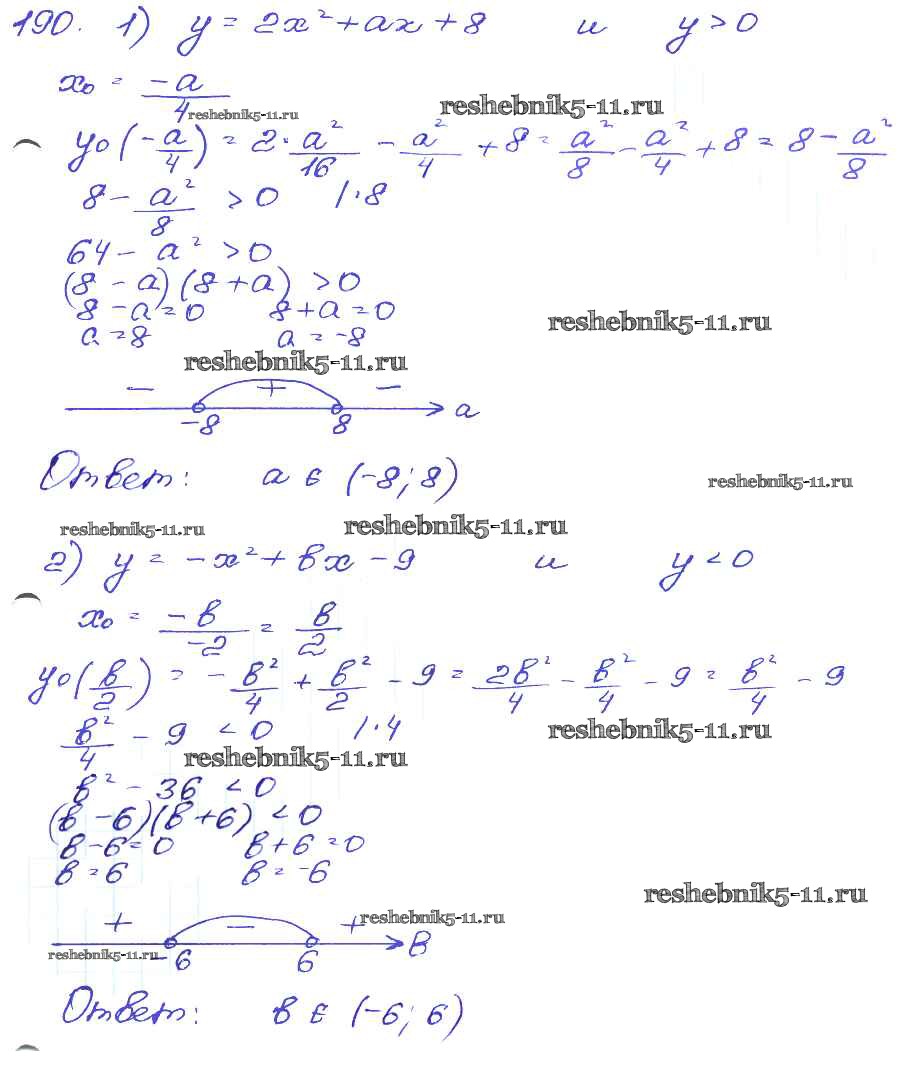 190. 1) y = 2x² + ax + 8 и y > 0
x₀ = -a/4
reshebnik5-11.ru reshebnik5-11.ru
y₀(-a/4) = 2·a²/16 - a²/4 + 8 = a²/8 - a²/4 + 8 = 8 - a²/8
8 - a²/8 > 0 /·8
64 - a² > 0
(8 - a)(8 + a) > 0
8 - a = 0 8 + a = 0
reshebnik5-11.ru
a = 8 a = -8
reshebnik5-11.ru
- + -
-8 8 a
Ответ: a ∈ (-8; 8)
reshebnik5-11.ru
reshebnik5-11.ru reshebnik5-11.ru
2) y = -x² + вx - 9 и y < 0
x₀ = -в/-2 = в/2
y₀(в/2) = -в²/4 + в²/2 - 9 = 2в²/4 - в²/4 - 9 = в²/4 - 9
в²/4 - 9 < 0 /·4
reshebnik5-11.ru
reshebnik5-11.ru
в² - 36 < 0
(в - 6)(в + 6) < 0
в - 6 = 0 в + 6 = 0
в = 6 в = -6
reshebnik5-11.ru
+ - + reshebnik5-11.ru
reshebnik5-11.ru -6 6 В
Ответ: в ∈ (-6; 6)